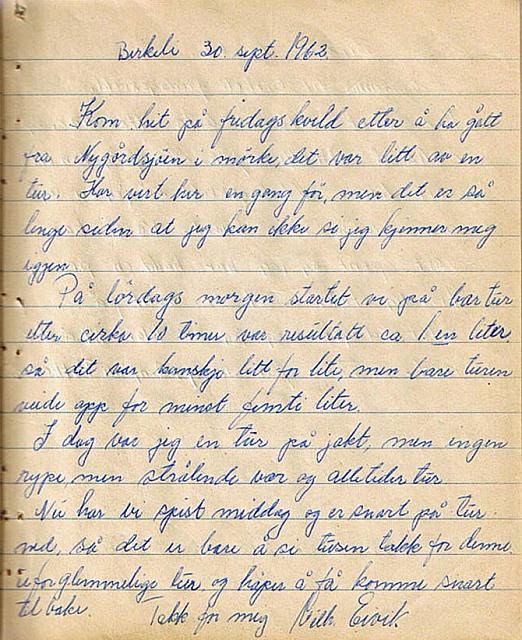 Birkeli 30. sept. 1962.
Kom hit på fridagskveld etter å ha gått
fra Nygårdsjöen i mörke, det var litt av en
tur. Har vert her en gang för, men det er så
lenge siden at jeg kan ikke si jeg kjenner meg
igjen
På lördags morgen startet vi på bærtur
etter cirka 10 timer var resultatt ca 1 en liter
så det var kanskje litt for lite, men bare turen
veide opp for minst femti liter.
I dag var jeg en tur på jakt, men ingen
rype, men strålende vær og alletiders tur
Nu har vi spist middag og er snart på tur
ned, så det er bare å si tusen takk for denne
uforglemmelige tur og håper å få komme snart
tilbake. Takk for meg Vilh.